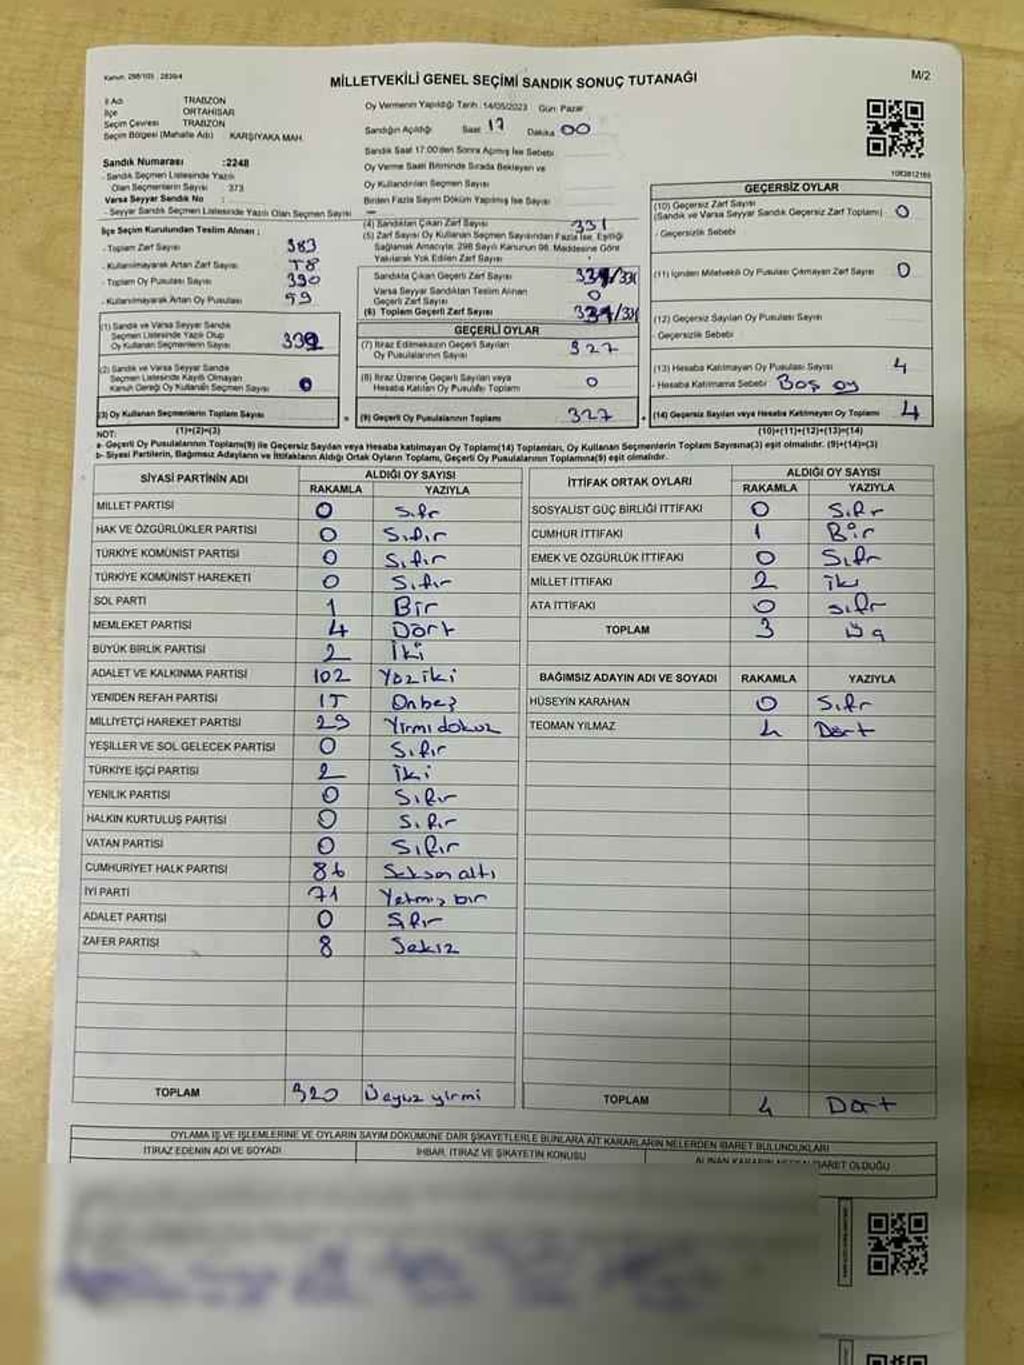 Kanun: 298/105 , 2839/4
MİLLETVEKİLİ GENEL SEÇİMİ SANDIK SONUÇ TUTANAĞI
M/2
İl Adı TRABZON
İlçe ORTAHİSAR
Seçim Çevresi TRABZON
Seçim Bölgesi (Mahalle Adı) KARŞIYAKA MAH.
Sandık Numarası :2248
- Sandık Seçmen Listesinde Yazılı
Olan Seçmenlerin Sayısı 373
Varsa Seyyar Sandık No :
- Seyyar Sandık Seçmen Listesinde Yazılı Olan Seçmen Sayısı
İlçe Seçim Kurulundan Teslim Alınan ;
- Toplam Zarf Sayısı 383
- Kullanılmayarak Artan Zarf Sayısı 58
- Toplam Oy Pusulası Sayısı 390
- Kullanılmayarak Artan Oy Pusulası 59
(1) Sandık ve Varsa Seyyar Sandık
Seçmen Listesinde Yazılı Olup
Oy Kullanan Seçmenlerin Sayısı
(2) Sandık ve Varsa Seyyar Sandık
Seçmen Listesinde Kayıtlı Olmayan
Kanun Gereği Oy Kullanan Seçmen Sayısı 0
(3) Oy Kullanan Seçmenlerin Toplam Sayısı
(1)+(2)=(3)
Oy Vermenin Yapıldığı Tarih : 14/05/2023 Gün: Pazar
Sandığın Açıldığı Saat 17 Dakika 00
Sandık Saat 17:00'den Sonra Açılmış İse Sebebi
Oy Verme Saati Bitiminde Sırada Bekleyen ve
Oy Kullandırılan Seçmen Sayısı
Birden Fazla Sayım Döküm Yapılmış İse Sayısı
(4) Sandıktan Çıkan Zarf Sayısı 331
(5) Zarf Sayısı Oy Kullanan Seçmen Sayısından Fazla İse, Eşitliği
Sağlamak Amacıyla; 298 Sayılı Kanunun 98. Maddesine Göre
Yakılarak Yok Edilen Zarf Sayısı
Sandıkta Çıkan Geçerli Zarf Sayısı 331/331
Varsa Seyyar Sandıktan Teslim Alınan
Geçerli Zarf Sayısı 0
(6) Toplam Geçerli Zarf Sayısı 331/331
GEÇERLİ OYLAR
(7) İtiraz Edilmeksizin Geçerli Sayılan
Oy Pusulalarının Sayısı 327
(8) İtiraz Üzerine Geçerli Sayılan veya
Hesaba Katılan Oy Pusulası Toplamı 0
= (9) Geçerli Oy Pusulalarının Toplamı 327
1083812169
GEÇERSİZ OYLAR
(10) Geçersiz Zarf Sayısı
(Sandık ve Varsa Seyyar Sandık Geçersiz Zarf Toplamı) 0
- Geçersizlik Sebebi
(11) İçinden Milletvekili Oy Pusulası Çıkmayan Zarf Sayısı 0
(12) Geçersiz Sayılan Oy Pusulası Sayısı
- Geçersizlik Sebebi
(13) Hesaba Katılmayan Oy Pusulası Sayısı 4
- Hesaba Katılmama Sebebi Boş oy
+ (14) Geçersiz Sayılan veya Hesaba Katılmayan Oy Toplamı 4
(10)+(11)+(12)+(13)=(14)
NOT:
a- Geçerli Oy Pusulalarının Toplamı(9) ile Geçersiz Sayılan veya Hesaba katılmayan Oy Toplamı(14) Toplamları, Oy Kullanan Seçmenlerin Toplam Sayısına(3) eşit olmalıdır. (9)+(14)=(3)
b- Siyasi Partilerin, Bağımsız Adayların ve İttifakların Aldığı Ortak Oyların Toplamı, Geçerli Oy Pusulalarının Toplamına(9) eşit olmalıdır.
SİYASİ PARTİNİN ADI ALDIĞI OY SAYISI
RAKAMLA YAZIYLA
MİLLET PARTİSİ 0 Sıfır
HAK VE ÖZGÜRLÜKLER PARTİSİ 0 Sıfır
TÜRKİYE KOMÜNİST PARTİSİ 0 Sıfır
TÜRKİYE KOMÜNİST HAREKETİ 0 Sıfır
SOL PARTİ 1 Bir
MEMLEKET PARTİSİ 4 Dört
BÜYÜK BİRLİK PARTİSİ 2 İki
ADALET VE KALKINMA PARTİSİ 102 Yüziki
YENİDEN REFAH PARTİSİ 15 Onbeş
MİLLİYETÇİ HAREKET PARTİSİ 29 Yirmi dokuz
YEŞİLLER VE SOL GELECEK PARTİSİ 0 Sıfır
TÜRKİYE İŞÇİ PARTİSİ 2 İki
YENİLİK PARTİSİ 0 Sıfır
HALKIN KURTULUŞ PARTİSİ 0 Sıfır
VATAN PARTİSİ 0 Sıfır
CUMHURİYET HALK PARTİSİ 86 Seksen altı
İYİ PARTİ 71 Yetmiş bir
ADALET PARTİSİ 0 Sıfır
ZAFER PARTİSİ 8 Sekiz
TOPLAM 320 Üçyüz yirmi
İTTİFAK ORTAK OYLARI ALDIĞI OY SAYISI
RAKAMLA YAZIYLA
SOSYALİST GÜÇ BİRLİĞİ İTTİFAKI 0 Sıfır
CUMHUR İTTİFAKI 1 Bir
EMEK VE ÖZGÜRLÜK İTTİFAKI 0 Sıfır
MİLLET İTTİFAKI 2 İki
ATA İTTİFAKI 0 sıfır
TOPLAM 3 Üç
BAĞIMSIZ ADAYIN ADI VE SOYADI RAKAMLA YAZIYLA
HÜSEYİN KARAHAN 0 Sıfır
TEOMAN YILMAZ 4 Dört
TOPLAM 4 Dört
OYLAMA İŞ VE İŞLEMLERİNE VE OYLARIN SAYIM DÖKÜMÜNE DAİR ŞİKAYETLERLE BUNLARA AİT KARARLARIN NELERDEN İBARET BULUNDUKLARI
İTİRAZ EDENİN ADI VE SOYADI İHBAR, İTİRAZ VE ŞİKAYETİN KONUSU